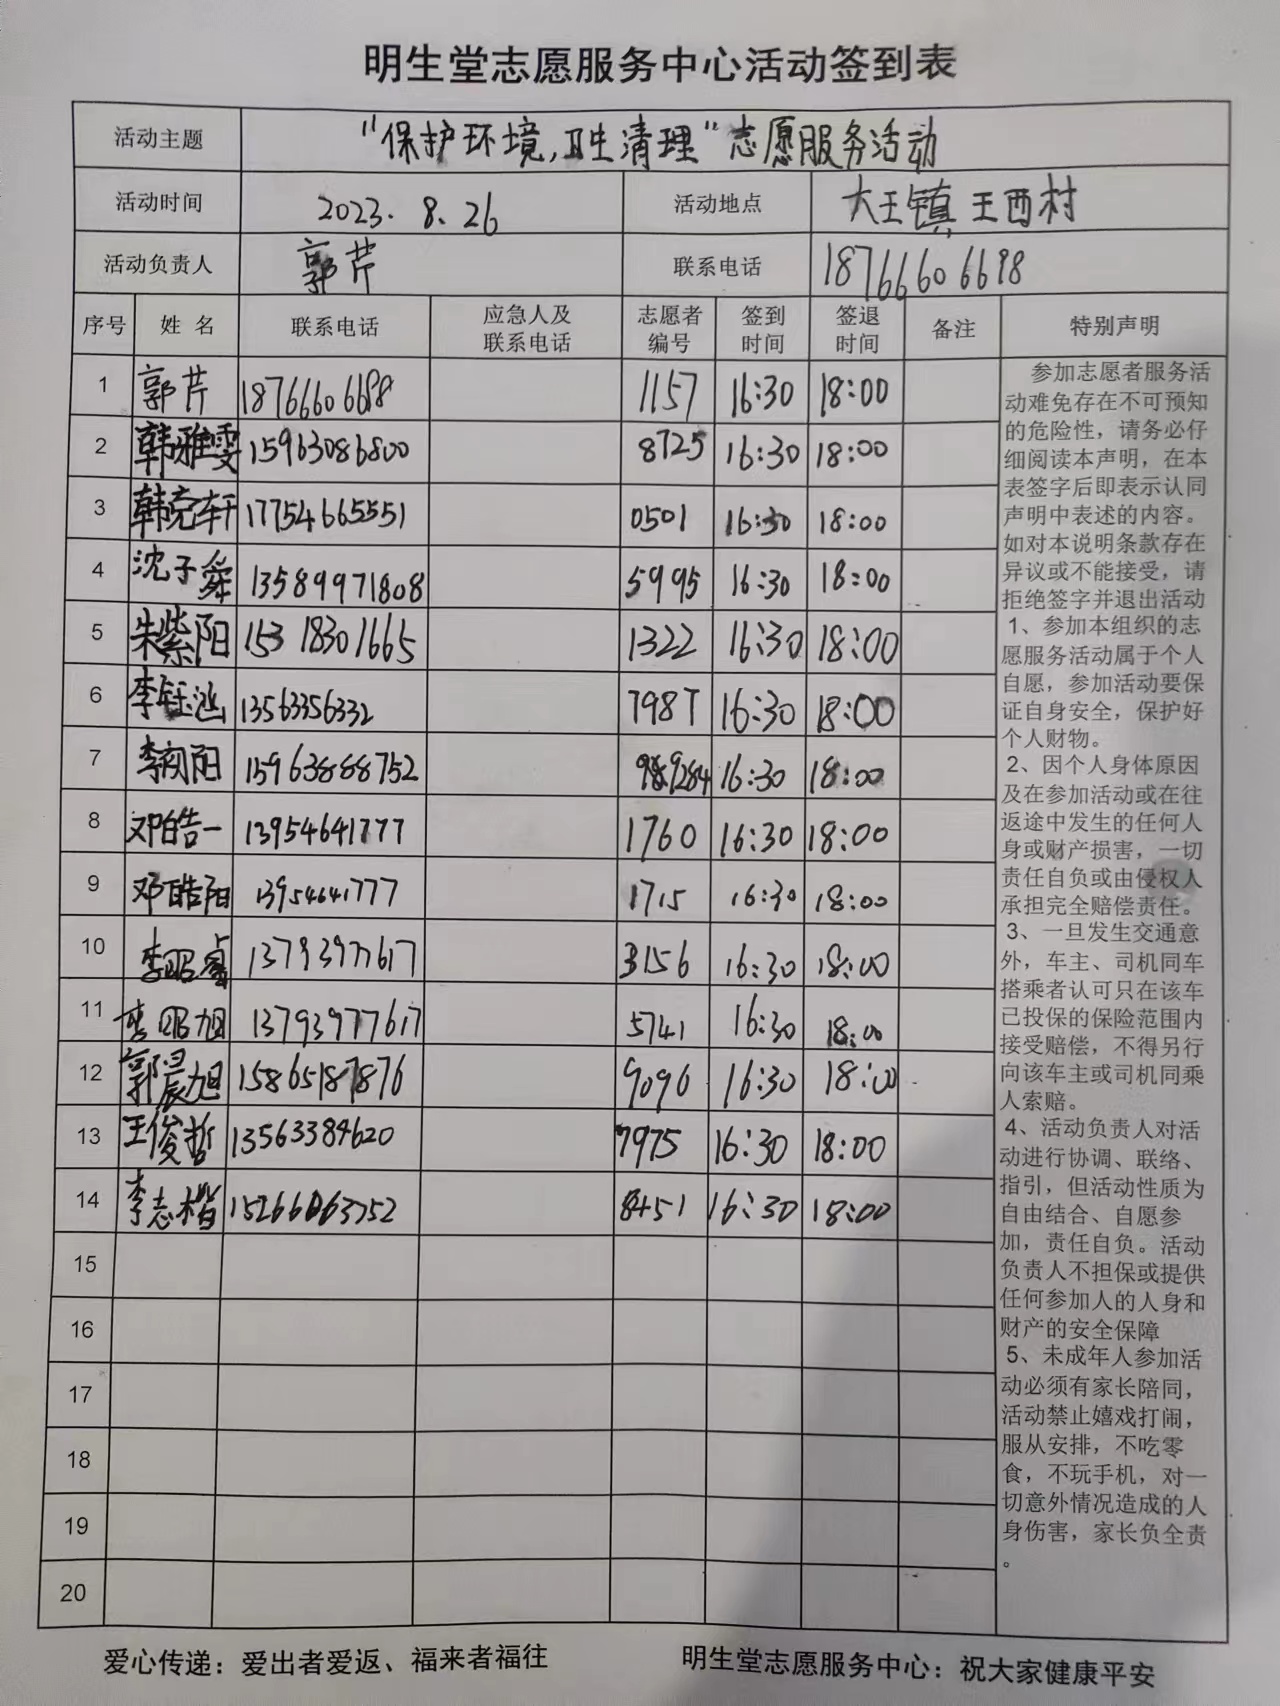 明生堂志愿服务中心活动签到表
活动主题 “保护环境,卫生清理”志愿服务活动
活动时间 2023.8.26 活动地点 大王镇王西村
活动负责人 郭芹 联系电话 18766606698
序号 姓名 联系电话 应急人及联系电话 志愿者编号 签到时间 签退时间 备注 特别声明
1 郭芹 18766606698 1157 16:30 18:00
2 韩雅雯 15963086800 8725 16:30 18:00
3 韩克轩 17754665551 0501 16:30 18:00
4 沈子舜 13589971808 5995 16:30 18:00
5 朱紫阳 15318301665 1322 16:30 18:00
6 李钰涵 13563356332 7987 16:30 18:00
7 李向阳 15963888752 9284 16:30 18:00
8 邓皓一 13954641777 1760 16:30 18:00
9 邓皓阳 13954641777 1715 16:30 18:00
10 李昭睿 13793977617 3156 16:30 18:00
11 李昭旭 13793977617 5741 16:30 18:00
12 郭晨旭 15865187876 9096 16:30 18:00
13 王俊哲 13563384620 7975 16:30 18:00
14 李志楷 8451 16:30 18:00
15
16
17
18
19
20
参加志愿者服务活
动难免存在不可预知
的危险性，请务必仔
细阅读本声明，在本
表签字后即表示认同
声明中表述的内容。
如对本说明条款存在
异议或不能接受，请
拒绝签字并退出活动
1、参加本组织的志
愿服务活动属于个人
自愿，参加活动要保
证自身安全，保护好
个人财物。
2、因个人身体原因
及在参加活动或在往
返途中发生的任何人
身或财产损害，一切
责任自负或由侵权人
承担完全赔偿责任。
3、一旦发生交通意
外，车主、司机同车
搭乘者认可只在该车
已投保的保险范围内
接受赔偿，不得另行
向该车主或司机同乘
人索赔。
4、活动负责人对活
动进行协调、联络、
指引，但活动性质为
自由结合、自愿参
加，责任自负。活动
负责人不担保或提供
任何参加人的人身和
财产的安全保障
5、未成年人参加活
动必须有家长陪同，
活动禁止嬉戏打闹，
服从安排，不吃零
食，不玩手机，对一
切意外情况造成的人
身伤害，家长负全责
。
爱心传递：爱出者爱返、福来者福往 明生堂志愿服务中心：祝大家健康平安